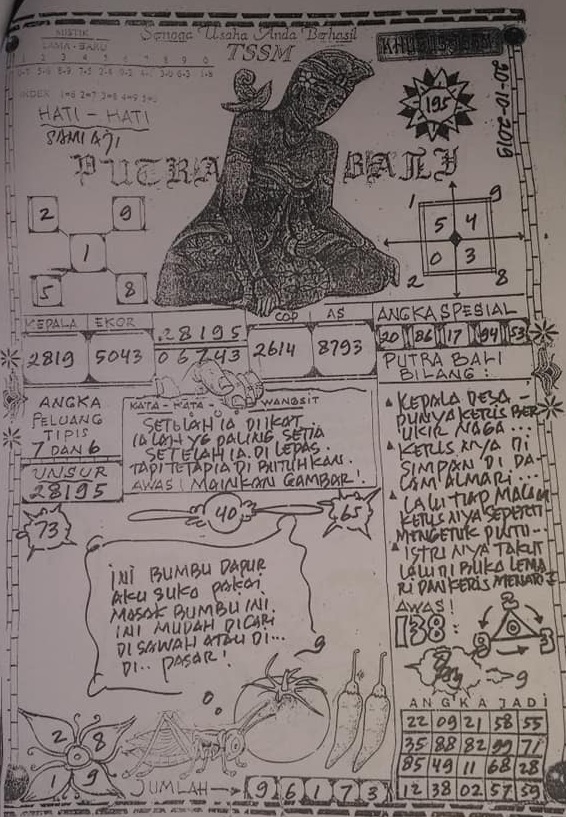 MISTIK
LAMA - BARU
1 2 3 4 5 6 7 8 9 0
Semoga Usaha Anda Berhasil
TSSM
KHUSUS TSSM
30-10-2019
195
INDEX 1=6 2=7 3=8 4=9 5=0
HATI - HATI
SAMI AJI
PUTRA BALI
2 9
1
5 8
1 9
5 4
0 3
2 8
KEPALA EKOR
2819 5043
28195
06743
COP AS
2614 8793
ANGKA SPESIAL
20 86 17 94 53
PUTRA BALI
BILANG :
ANGKA
PELUANG
TIPIS
7 DAN 6
UNSUR
28195
KATA - KATA WANGSIT
SETELAH IA DIIKAT
IALAH YG PALING SETIA
SETELAH IA DI LEPAS.
TAPI TETAP IA DI BUTUHKAN.
AWAS! MAINKAN GAMBAR!
KEPALA DESA -
PUNYA KERIS BER
UKIR NAGA ...
KERIS NYA DI
SIMPAN DI DA-
LAM ALMARI ...
LALU TIAP MALAM
KERIS NYA SEPERTI
MENGETUK PINTU...
ISTRI NYA TAKUT
LALU DI BUKA LEMA
RI DAN KERIS MENARI
73
40
65
INI BUMBU DAPUR
AKU SUKA PAKAI
MASAK BUMBU INI.
INI MUDAH DICARI
DI SAWAH ATAU DI...
DI.. PASAR!
9
AWAS!
138:
9
2 8
1 9
JUMLAH → 9 6 1 7 3
ANGKA JADI
22 09 21 58 55
35 88 82 99 71
85 49 11 68 28
12 38 02 57 59